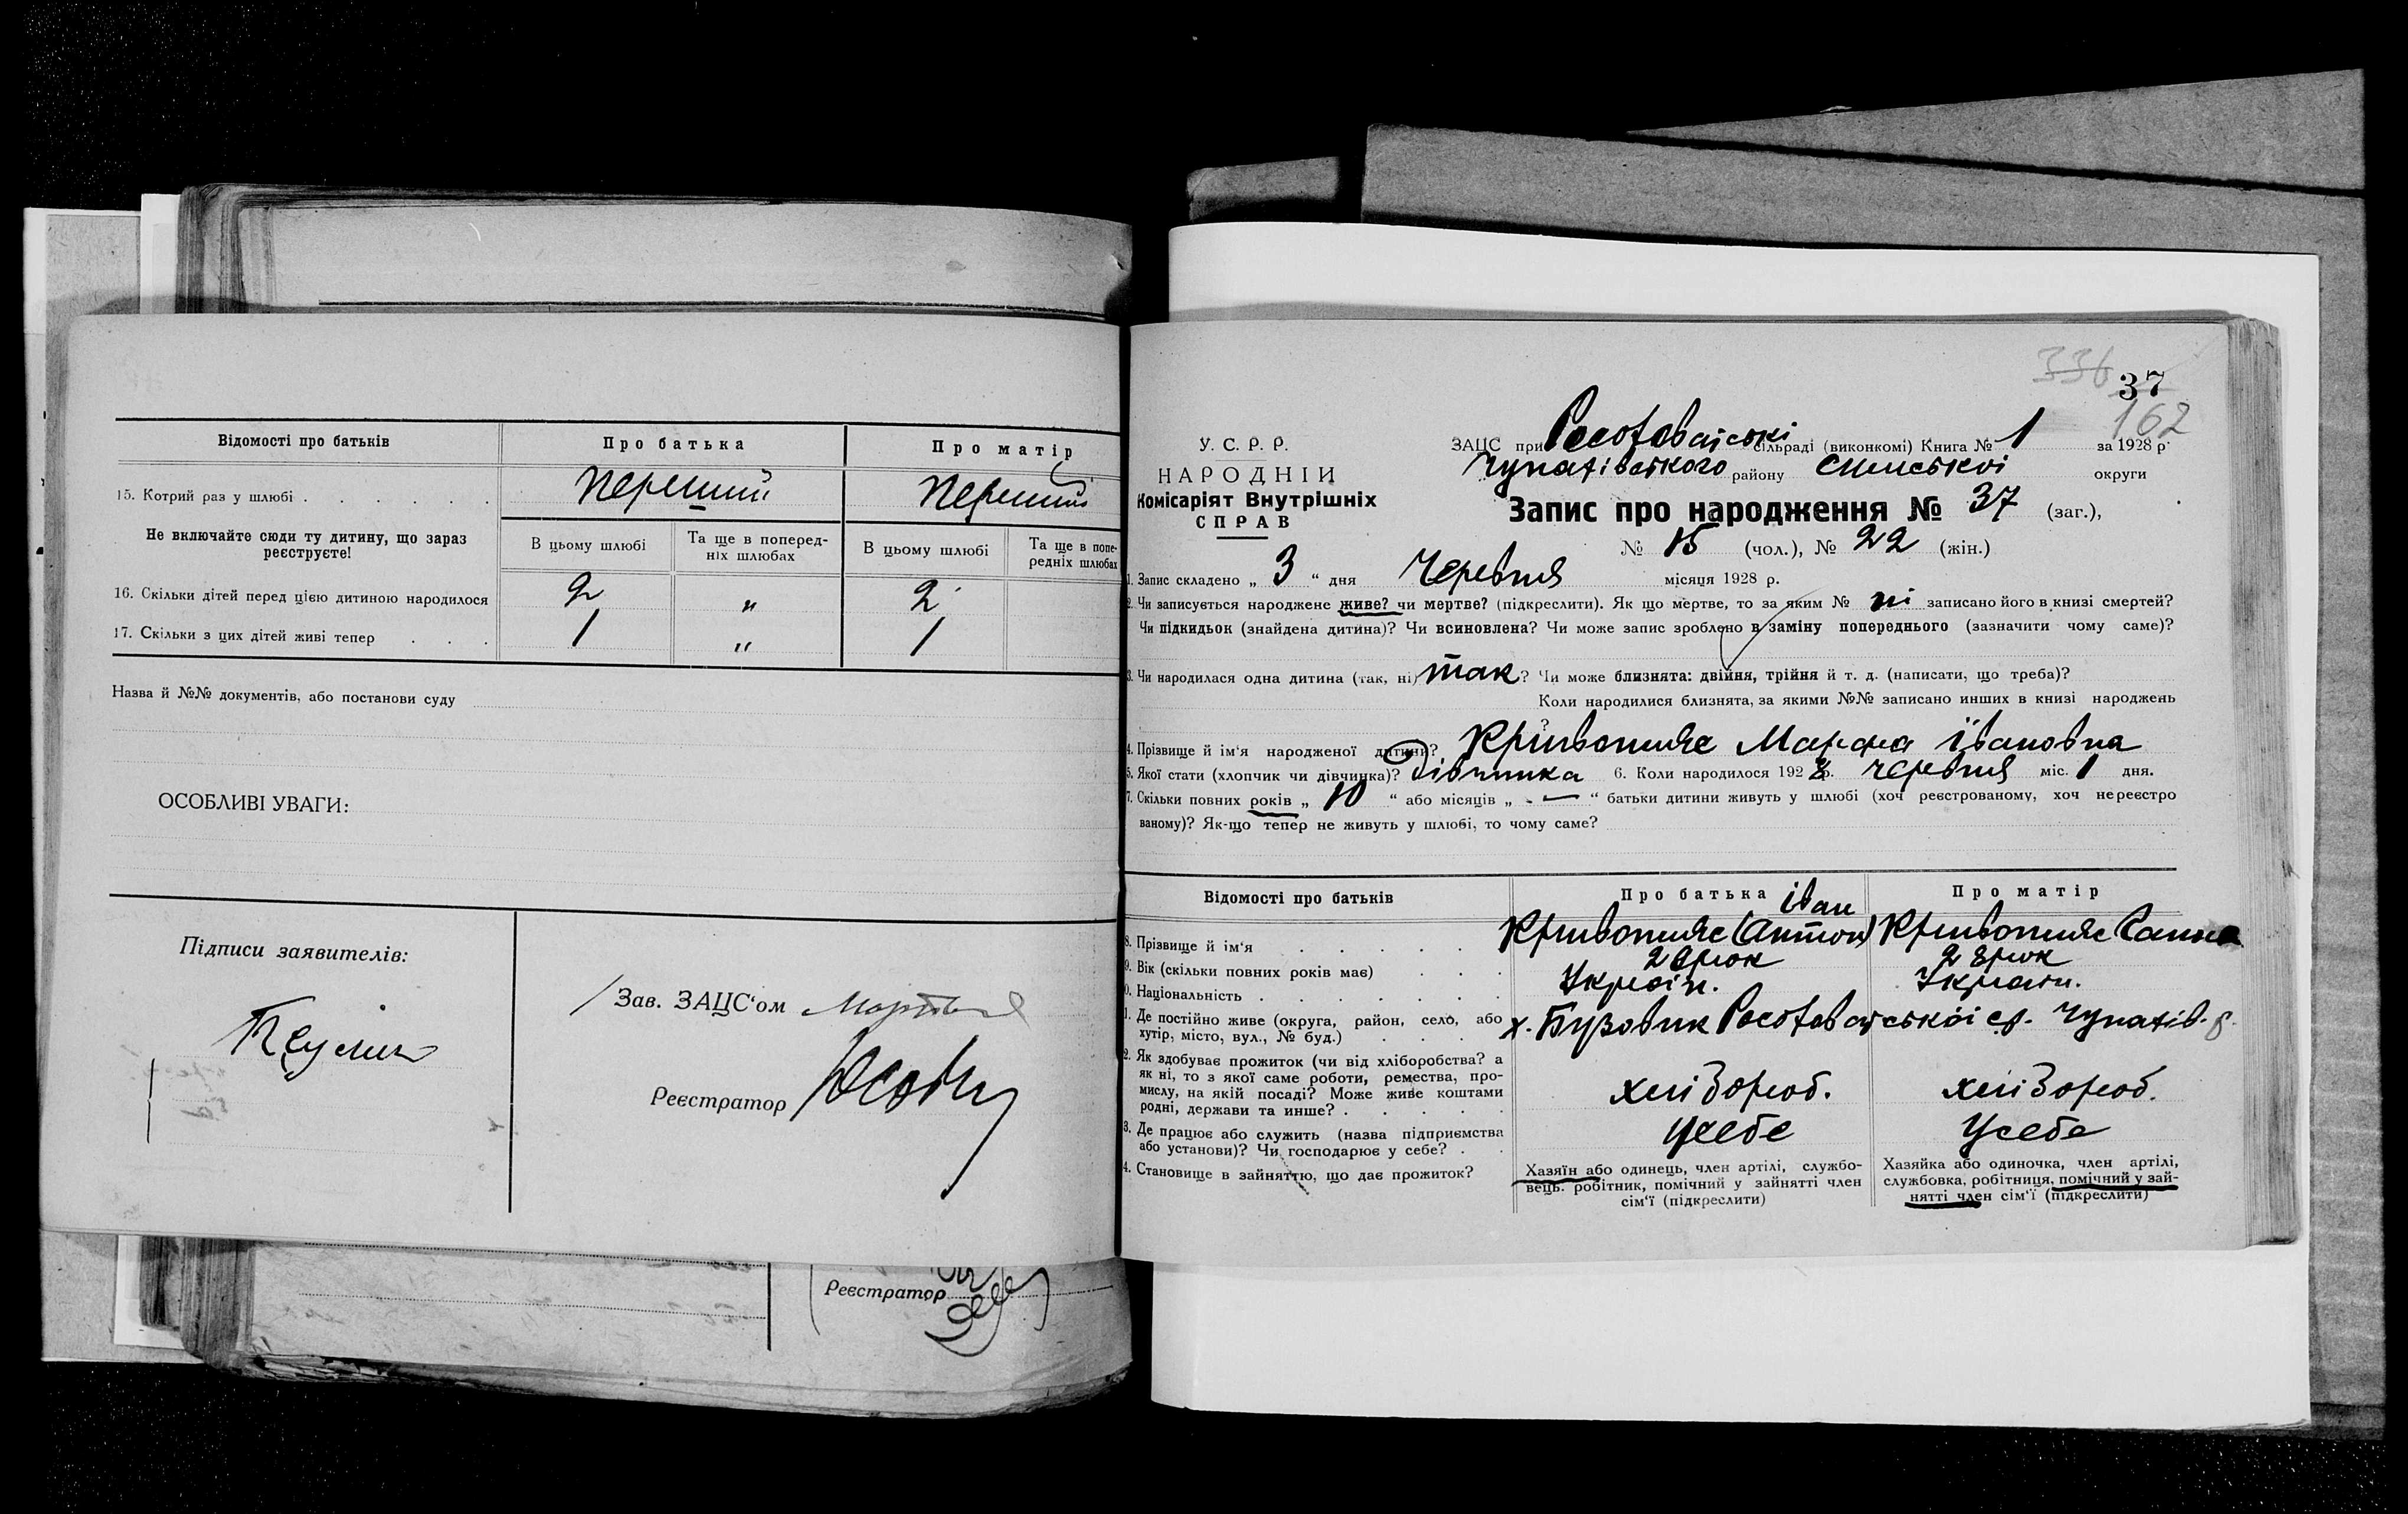 Відомості про батьків
Про батька
Про матір
15. Котрий раз у шлюбі
перший
перший
Не включайте сюди ту дитину, що зараз реєструєте!
В цьому шлюбі
Та ще в поперед-
ніх шлюбах
В цьому шлюбі
Та ще в попе-
редніх шлюбах
16. Скільки дітей перед цією дитиною народилося
2 „ 2
17. Скільки з цих дітей живі тепер
1 „ 1
Назва й №№ документів, або постанови суду
ОСОБЛИВІ УВАГИ:
Підписи заявителів:
Зав. ЗАЦС‘ом
Реєстратор
Реєстратор
336
37
162
У. С. Р. Р.
НАРОДНІЙ
Комісаріят Внутрішніх
СПРАВ
ЗАЦС при сільраді (виконкомі) Книга № 1 за 1928 р.
району округи
Запис про народження № 37 (заг.),
№ 15 (чол.), № 22 (жін.)
1. Запис складено „ 3 “ дня Червня місяця 1928 р.
2. Чи записується народжене живе? чи мертве? (підкреслити). Як що мертве, то за яким № ні записано його в книзі смертей?
Чи підкидьок (знайдена дитина)? Чи всиновлена? Чи може запис зроблено в заміну попереднього (зазначити чому саме)?
3. Чи народилася одна дитина (так, ні) так? Чи може близнята: двійня, трійня й т. д. (написати, що треба)?
Коли народилися близнята, за якими №№ записано инших в книзі народжень
?
4. Прізвище й ім‘я народженої дитини? Кривошияс Марфа Івановна
5. Якої стати (хлопчик чи дівчинка)? Дівчинка 6. Коли народилося 1928 р. червня міс. 1 дня.
7. Скільки повних років „ 10 “ або місяців „ - — “ батьки дитини живуть у шлюбі (хоч реєстрованому, хоч нереєстро
ваному)? Як-що тепер не живуть у шлюбі, то чому саме?
Відомості про батьків
Про батька
Про матір
Іван
8. Прізвище й ім‘я
Кривошияс (Антон)
Кривошияс
9. Вік (скільки повних років має)
28 рок
10. Національність
Україн.
Україн.
11. Де постійно живе (округа, район, село, або
хутір, місто, вул., № буд.)
х. Бузовик
12. Як здобуває прожиток (чи від хліборобства? а
як ні, то з якої саме роботи, ремества, про-
мислу, на якій посаді? Може живе коштами
родні, держави та инше?
хлібороб.
хлібороб.
13. Де працює або служить (назва підприємства
або установи)? Чи господарює у себе?
Усебе
Усебе
14. Становище в зайняттю, що дає прожиток?
Хазяїн або одинець, член артілі, службо-
вець. робітник, помічний у зайнятті член
сім‘ї (підкреслити)
Хазяйка або одиночка, член артілі,
службовка, робітниця, помічний у зай-
нятті член сім‘ї (підкреслити)